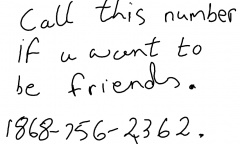 Call this number
if u want to
be friends.
1868-756-2362.